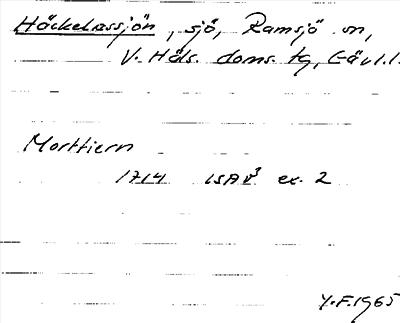 Häckelåssjön, sjö, Ramsjö sn,
V. Häls. doms. tg, Gävl.l.
Morttiern
1714 ISAV³ ex. 2
Y.F.1965